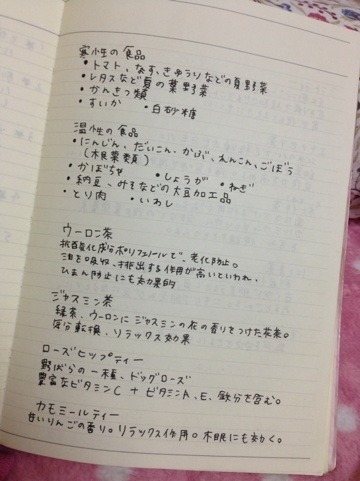 寒性の食品
・トマト、なす、きゅうりなどの夏野菜
・レタスなど夏の葉野菜
・かんきつ類
・すいか ・白砂糖
温性の食品
・にんじん、だいこん、かぶ、れんこん、ごぼう
(根菜類)
・かぼちゃ ・しょうが ・ねぎ
・納豆、みそなどの大豆加工品
・とり肉 ・いわし
ウーロン茶
抗酸化成分ポリフェノールで、老化防止。
油を吸収、排出する作用が高いといわれ、
ひまん防止にも効果的
ジャスミン茶
緑茶、ウーロンにジャスミンの花の香りをつけた花茶。
気分転換、リラックス効果
ローズヒップティー
野ばらの一種、ドッグローズ
豊富なビタミンC + ビタミンA、E、鉄分を含む。
カモミールティー
甘いりんごの香り。リラックス作用。不眠にも効く。